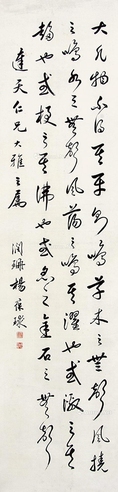 大凡物不得其平則鳴草木之無聲風撓
之鳴水之無聲風蕩之鳴其躍也或激之其
趨也或梗之其沸也或炙之金石之無聲
達天仁兄大雅之屬
潤珊楊